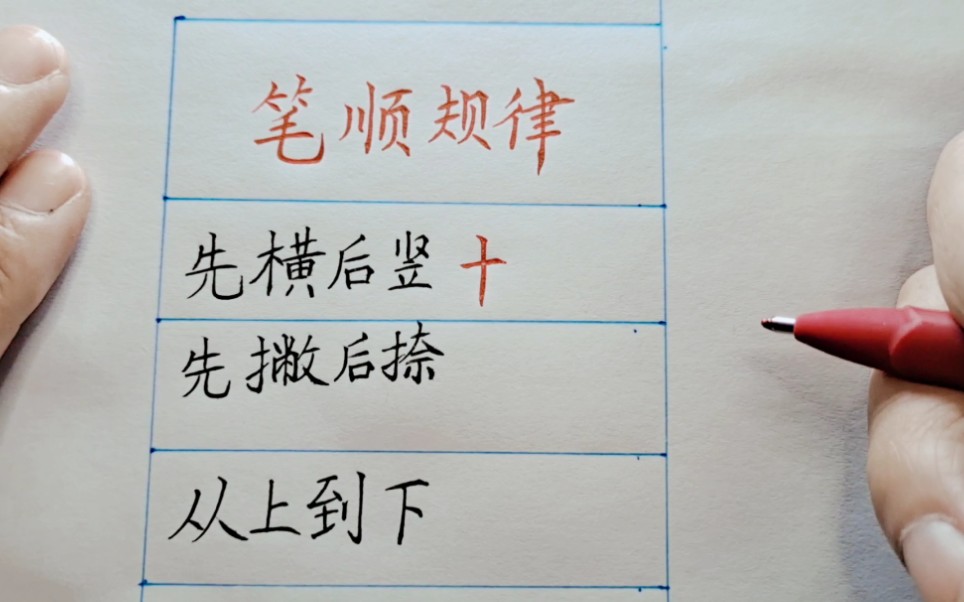 笔顺规律
先横后竖 十
先撇后捺
从上到下